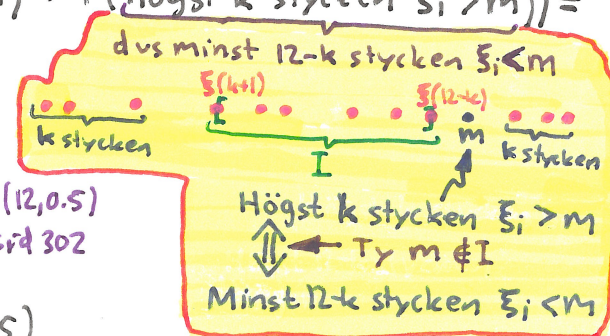 (Högst k stycken ξᵢ > m)) =
dvs minst 12-k stycken ξᵢ < m
ξ(k+1) ξ(12-k)
k stycken m k stycken
I
(12,0.5) Högst k stycken ξᵢ > m
302 ⇕ ← Ty m ∉ I
Minst 12-k stycken ξᵢ < m